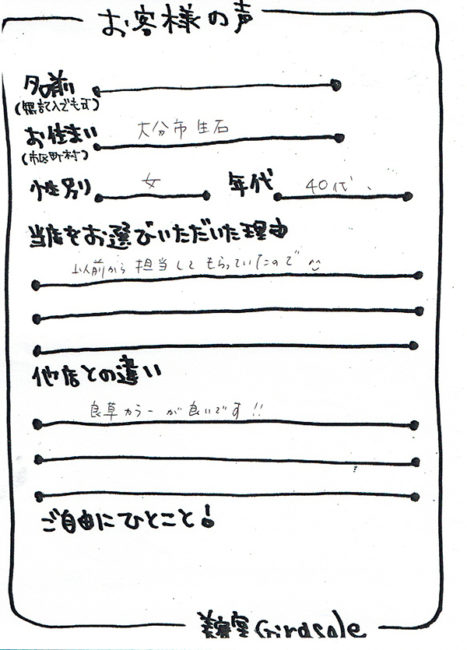 お客様の声
名前
(無記入でも可)
お住まい 大分市生石
(市区町村)
性別 女 年代 40代、
当店をお選びいただいた理由
以前から担当してもらっていたので
他店との違い
良草カラーが良いです!!
ご自由にひとこと!
美容室 Girasole